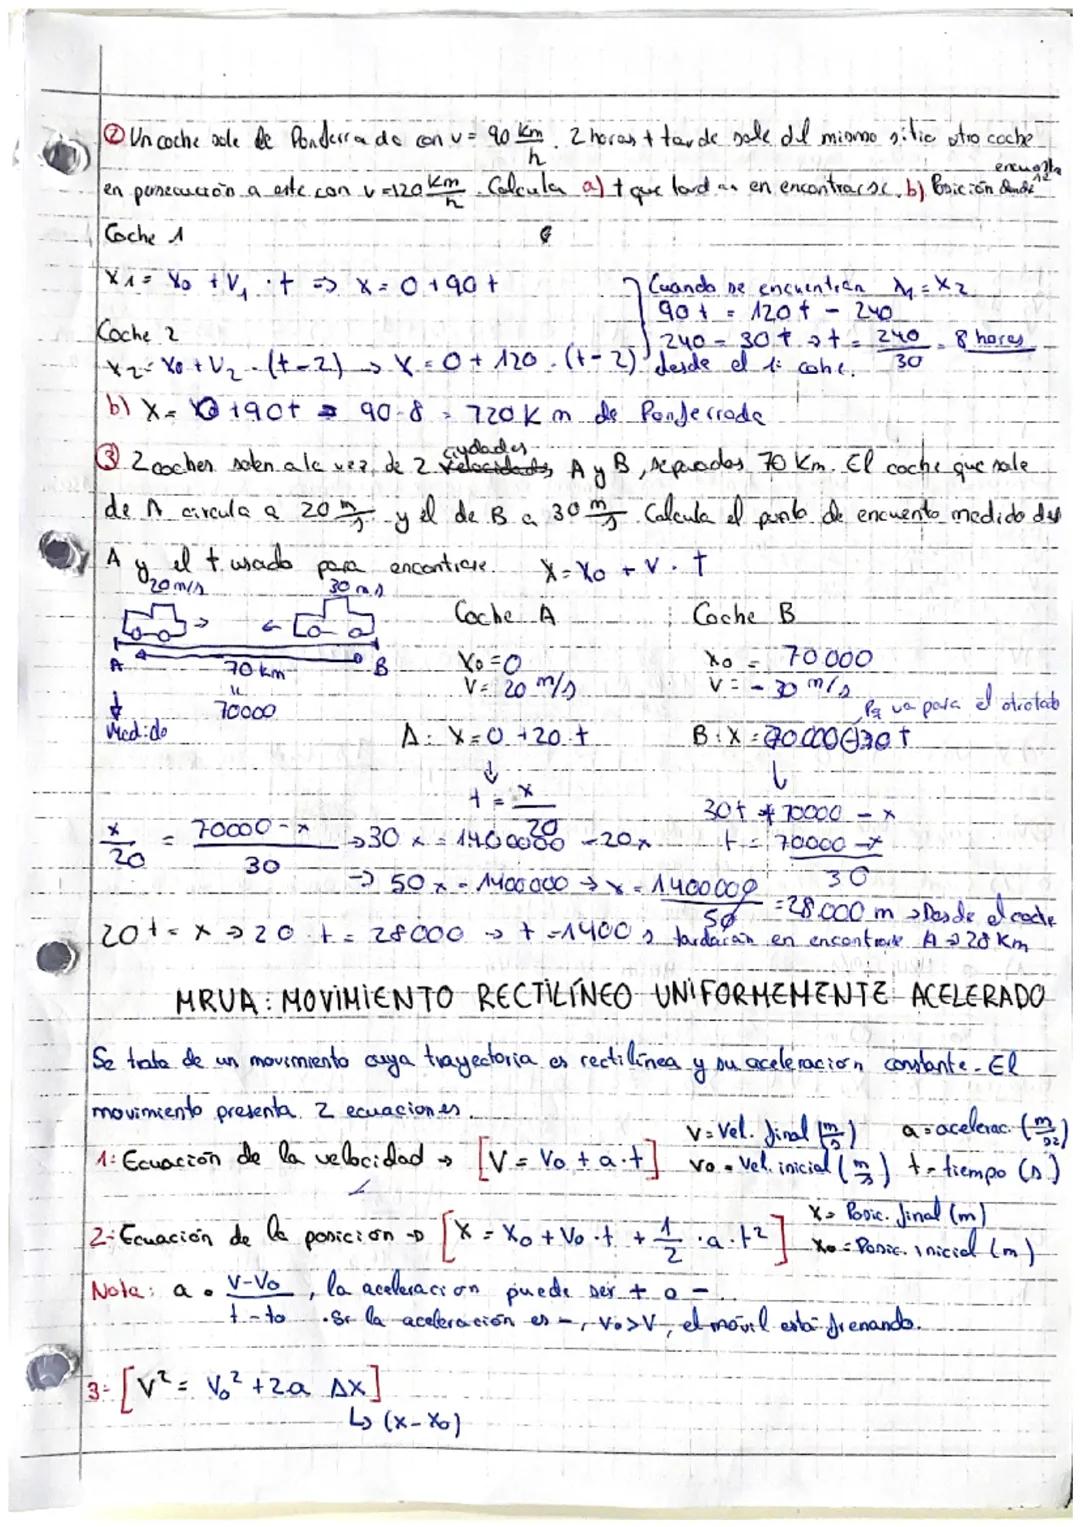 ② Un coche sale de Ponferrada con v = 90 km/h. 2 horas + tarde sale del mismo sitio otro coche
en persecución a este con v = 120 km/h. Calcula a) t que tardan en encontrarse. b) Posición donde encuentra
Coche 1
X1 = X0 + V1 · t => X = 0 + 90 t
Cuando se encuentran X1 = X2
90 t = 120 t - 240
Coche 2
240 = 30 t → t = 240/30 = 8 horas
X2 = X0 + V2 · (t-2) → X = 0 + 120 · (t-2) desde el 1º coche.
b) X = 0 + 90t = 90·8 = 720 Km de Ponferrada
③ 2 coches salen a la vez, de 2 ciudades A y B, separados 70 Km. El coche que sale
de A circula a 20 m/s y el de B a 30 m/s. Calcula el punto de encuento medido des
A y el t usado para encontrarse. X = X0 + V · t
20 m/s 30 m/s
Coche A Coche B
A 70 km B
X0 = 0 X0 = 70000
V = 20 m/s V = -30 m/s
70000
Pq va para el otro lado
Medido
A: X = 0 + 20 · t B: X = 70000 - 30 t
t = x/20
30t = 70000 - x
x/20 = 70000 - x/30 → 30 x = 1400000 - 20x
t = 70000 - x/30
→ 50 x = 1400000 → x = 1400000/50 = 28.000 m → Desde el coche
20 t = x → 20 · t = 28000 → t = 1400 s tardarán en encontrarse A → 28 Km
MRUA: MOVIMIENTO RECTILÍNEO UNIFORMEMENTE ACELERADO
Se trata de un movimiento cuya trayectoria es rectilínea y su aceleración constante. El
movimiento presenta 2 ecuaciones.
V = Vel. final (m/s) a = acelerac. (m/s2)
1: Ecuación de la velocidad → [V = V0 + a · t] V0 = Vel. inicial (m/s) t = tiempo (s)
X = Posic. final (m)
2: Ecuación de la posición → [X = X0 + V0 · t + 1/2 · a · t²] X0 = Posic. inicial (m)
Nota: a = V-V0/t-t0, la aceleracion puede ser + o -.
· Si la aceleración es -, V0 > V, el móvil está frenando.
3: [V² = V0² + 2a ΔX]
↳ (X - X0)